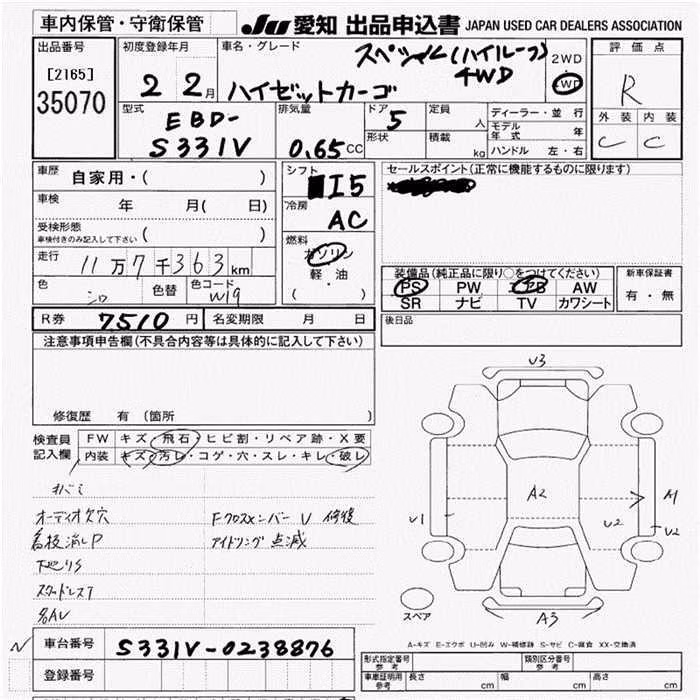 車内保管・守衛保管
JU 愛知 出品申込書 JAPAN USED CAR DEALERS ASSOCIATION
出品番号
[2165]
35070
初度登録年月
22月
車名・グレード
スペシャル(ハイルーフ)
4WD
ハイゼットカーゴ
2WD
4WD
評価点
R
外装 内装
C C
型式
EBD-
S331V
排気量
0.65cc
ドア 5
形状
定員 人
積載 kg
ディーラー・並行
モデル年式 年
ハンドル 左・右
車歴 自家用・( )
車検 年 月( 日)
受検形態
車検付きのみ記入して下さい ( )
走行 11万7千363km
色 シロ 色替 色コード W19
シフト
I5
冷房
AC
燃料
ガソリン
軽・油
( )
セールスポイント(正常に機能するものに限ります)
装備品(純正品に限り○をつけてください)
PS PW AB AW
SR ナビ TV カワシート
新車保証書
有・無
R券 7510円 名変期限 月 日
後日品
注意事項申告欄(不具合内容等は具体的に記入して下さい)
修復歴 有(箇所 )
検査員記入欄
FW キズ・飛石・ヒビ割・リペア跡・X要
内装 キズ・汚レ・コゲ・穴・スレ・キレ・破レ
オーディオ欠穴
看板消しP
下廻りS
スタッドレスT
各AU
Fクロスメンバー U 修復
アイドリング 点滅
V3
A2
U1
U2
A1
U2
A3
スペア
A-キズ E-エクボ U-凹み W-補修跡 S-サビ C-腐食 XX-交換済
車台番号 S331V-0238876
登録番号
形式指定番号 参考
類別区分番号 参考
車庫証明用 参考 長さ cm 幅 cm 高さ cm